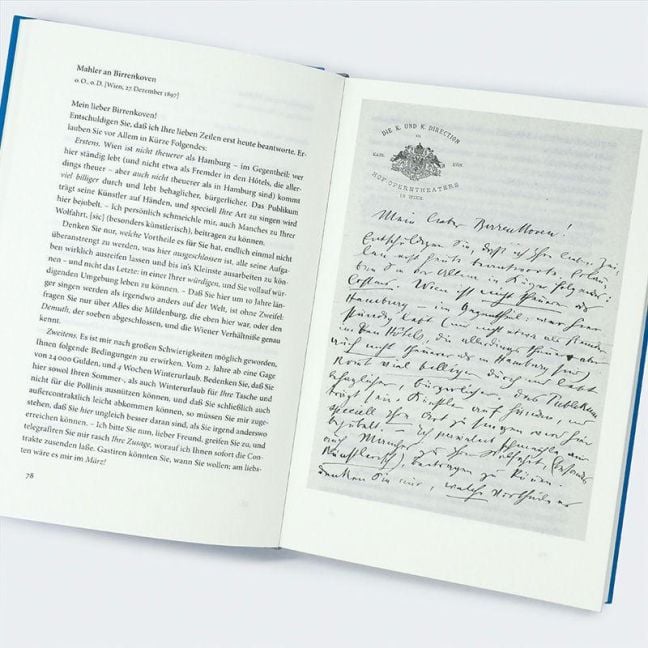 Mahler an Birrenkoven
o. O., o. D. [Wien, 27. Dezember 1897]
Mein lieber Birrenkoven!
Entschuldigen Sie, daß ich Ihre lieben Zeilen erst heute beantworte. Er-
lauben Sie vor Allem in Kürze Folgendes:
Erstens. Wien ist nicht theuerer als Hamburg – im Gegentheil: wer
hier ständig lebt (und nicht etwa als Fremder in den Hôtels, die aller-
dings theuer – aber auch nicht theuerer als in Hamburg sind) kommt
viel billiger durch und lebt behaglicher, bürgerlicher. Das Publikum
trägt seine Künstler auf Händen, und speciell Ihre Art zu singen wird
hier bejubelt. – Ich persönlich schmeichle mir, auch Manches zu Ihrer
Wolfahrt, [sic] (besonders künstlerisch), beitragen zu können.
Denken Sie nur, welche Vortheile es für Sie hat, endlich einmal nicht
überanstrengt zu werden, was hier ausgeschlossen ist, alle seine Aufga-
ben wirklich ausreifen lassen und bis in's Kleinste ausarbeiten zu kön-
nen – und nicht das Letzte: in einer Ihrer würdigen, und Sie vollauf wür-
digenden Umgebung leben zu können. – Daß Sie hier um 10 Jahre län-
ger singen werden als irgendwo anders auf der Welt, ist ohne Zweifel:
fragen Sie nur über Alles die Mildenburg, die eben hier war, oder den
Demuth, der soeben abgeschlossen, und die Wiener Verhältniße genau
kennt.
Zweitens. Es ist mir nach großen Schwierigkeiten möglich geworden,
Ihnen folgende Bedingungen zu erwirken. Vom 2. Jahre ab eine Gage
von 24 000 Gulden, und 4 Wochen Winterurlaub. Bedenken Sie, daß Sie
hier sowol Ihren Sommer-, als auch Winterurlaub für Ihre Tasche und
nicht für die Pollinis ausnützen können, und daß Sie schließlich auch
außercontraktlich leicht abkommen können, so müssen Sie mir zuge-
stehen, daß Sie hier ungleich besser daran sind, als Sie irgend anderswo
erreichen können. – Ich bitte Sie nun, lieber Freund, greifen Sie zu, und
telegrafiren Sie mir rasch Ihre Zusage, worauf ich Ihnen sofort die Con-
trakte zusenden laße. Gastiren könnten Sie, wann Sie wollen: am liebs-
ten wäre es mir im März!
78
DIE K. UND K. DIRECTION
DES
KAIS. KÖN.
HOF-OPERNTHEATERS
IN WIEN
Mein lieber Birrenkoven!
Entschuldigen Sie, daß ich Ihre lieben Zei-
len erst heute beantworte. Erlau-
ben Sie vor Allem in Kürze Folgendes:
Erstens. Wien ist nicht theuerer als
Hamburg – im Gegentheil: wer hier
ständig lebt (und nicht etwa als Fremder
in den Hôtels, die allerdings theuer – aber
auch nicht theuerer als in Hamburg sind)
kommt viel billiger durch und lebt
behaglicher, bürgerlicher. Das Publikum
trägt seine Künstler auf Händen, und
speciell Ihre Art zu singen wird hier
bejubelt. – Ich persönlich schmeichle mir,
auch Manches zu Ihrer Wolfahrt, (besonders
künstlerisch), beitragen zu können.
Denken Sie nur, welche Vortheile es